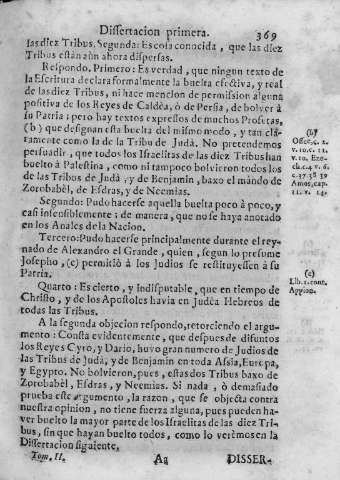 Dissertacion primera. 369
las diez Tribus. Segunda: Es cosa conocida, que las diez
Tribus están aùn ahora dispersas.
Respondo. Primero: Es verdad, que ningun texto de
la Escritura declara formalmente la buelta efectiva, y real
de las diez Tribus, ni hace mencion de permission alguna
positiva de los Reyes de Caldèa, ò de Persia, de bolver à
su Patria; pero hay textos expressos de muchos Profetas,
(b) que designan esta buelta del mismo modo, y tan cla-
ramente como la de la Tribu de Judá. No pretendemos
persuadir, que todos los Israelitas de las diez Tribus han
buelto à Palestina, como ni tampoco bolvieron todos los
de las Tribus de Judá, y de Benjamin, baxo el màndo de
Zorobabèl, de Esdras, y de Neemias.
Segundo: Pudo hacerse aquella buelta poco à poco, y
casi insensiblemente; de manera, que no se haya anotado
en los Anales de la Nacion.
Tercero: Pudo hacerse principalmente durante el rey-
nado de Alexandro el Grande, quien, segun lo presume
Josepho, (c) permitiò à los Judios se restituyessen à su
Patria.
Quarto: Es cierto, y indisputable, que en tiempo de
Christo, y de los Apostoles havia en Judèa Hebreos de
todas las Tribus.
A la segunda objecion respondo, retorciendo el argu-
mento: Consta evidentemente, que despues de difuntos
los Reyes Cyro, y Dario, huvo gran numero de Judios de
las Tribus de Judà, y de Benjamin en toda Assia, Europa,
y Egypto. No bolvieron, pues, estas dos Tribus baxo de
Zorobabèl, Esdras, y Neemias. Si nada, ò demasiado
prueba este argumento, la razon, que se objecta contra
nuestra opinion, no tiene fuerza alguna, pues pueden ha-
ver buelto la mayor parte de los Israelitas de las diez Tri-
bus, sin que hayan buelto todos, como lo verèmos en la
Dissertacion siguiente.
Tom. II. Aa DISSER-
(b)
Osseæ, c. 2.
v. 10. c. 11.
v. 10. Eze-
ch. c. 4. v. 6.
c. 37. 38 39
Amos, cap.
11. v. 14.
(c)
Lib. 1. cont.
Appion.